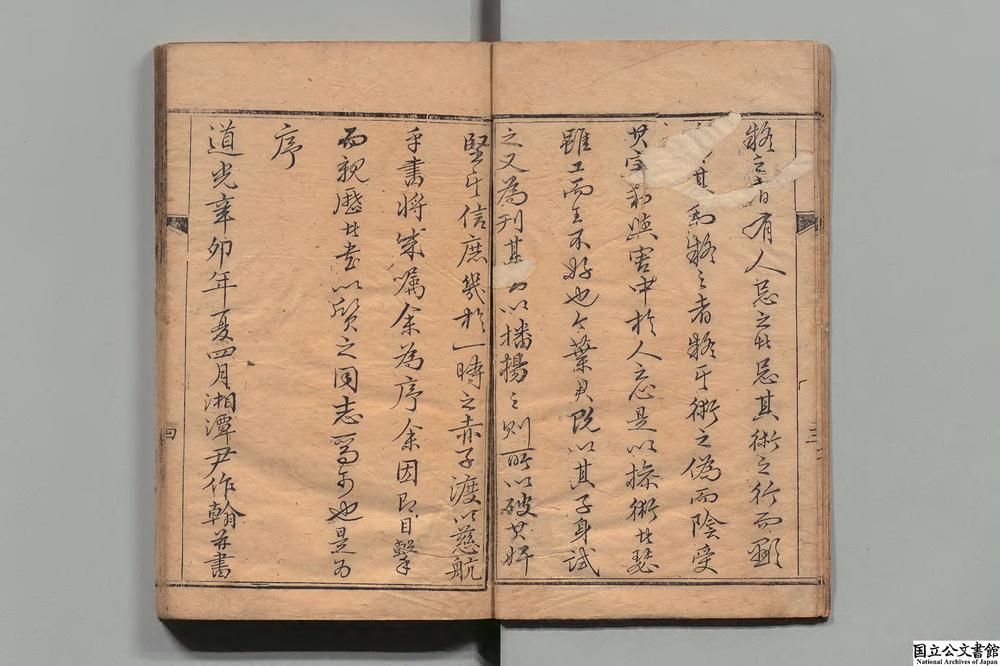 疑之者有人忌之者忌其術之行而顯
其利疑之者疑其術之偽而陰受
其害利與害中於人之忌是以操術者瑟
雖工而王不好也今葉君既以其子身試
之又為刊其以播揚之則所以破其奸
堅其信庶幾於一時之赤子渡以慈航
乎書將成囑余為序余因即目擊
而親歷者書以質之同志焉可也是為
序
道光辛卯年夏四月湘潭尹作翰并書
三
四
国立公文書館
National Archives of Japan